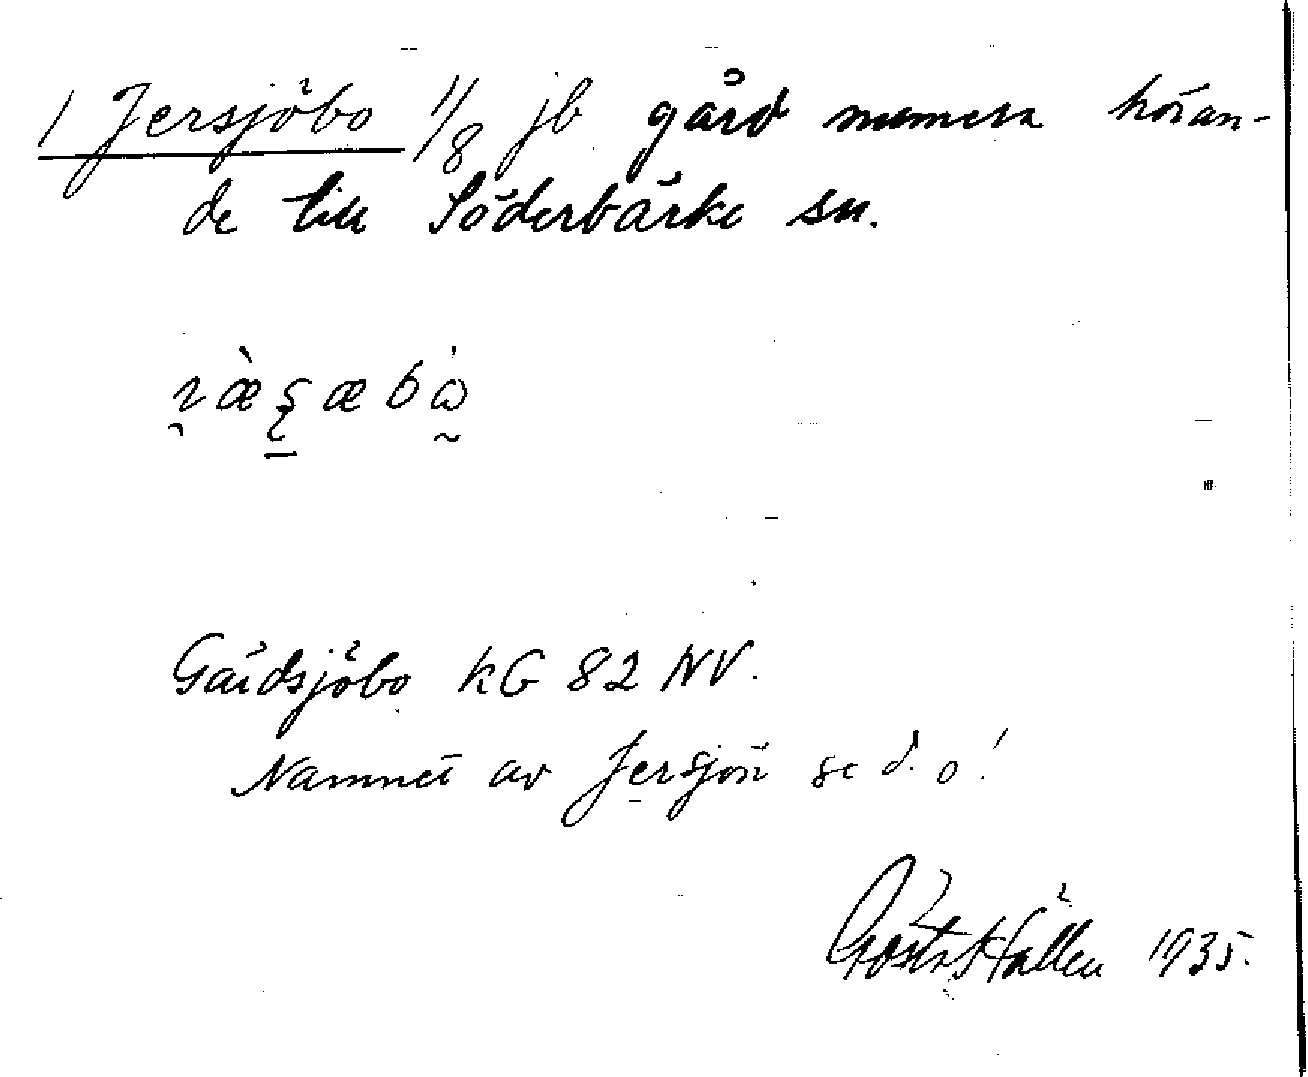 1 Jersjöbo 1/8 jb gård numera höran-
de till Söderbärke sn.
Gärdsjöbo KG 82 NV.
Namnet av Jersjön se d. o!
Gösta Hallen 1935.